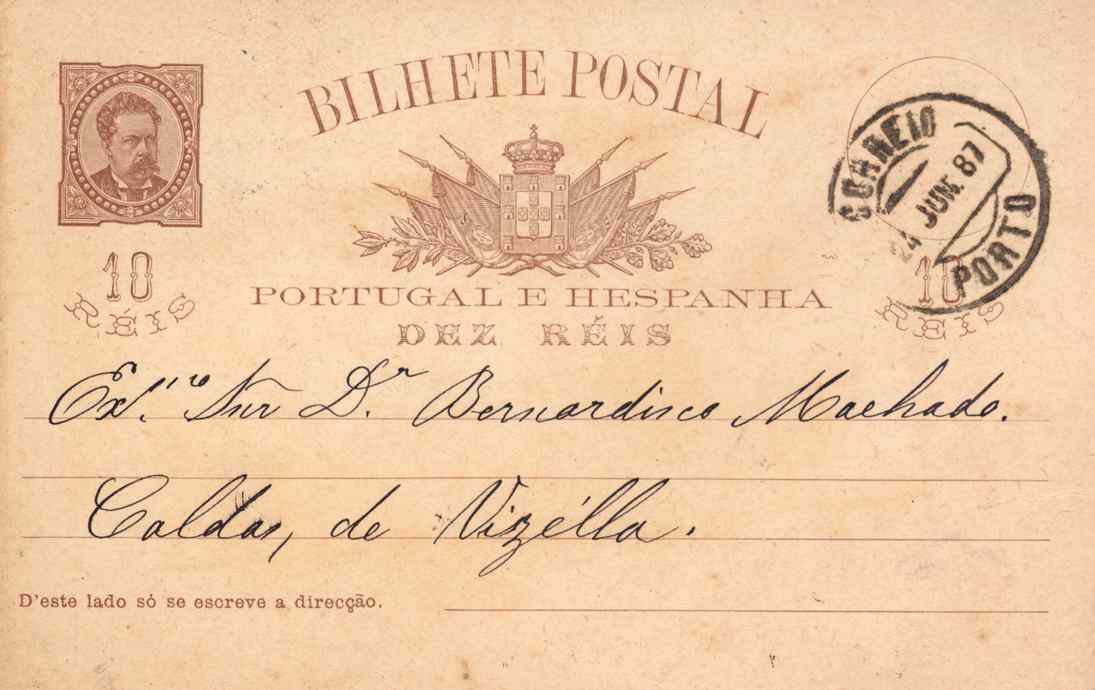 BILHETE POSTAL
CORREIO
24 JUN. 87
PORTO
10
RÉIS
10
RÉIS
PORTUGAL E HESPANHA
DEZ RÉIS
Ex.mo Snr Dr. Bernardino Machado.
Caldas, de Vizélla.
D'este lado só se escreve a direcção.